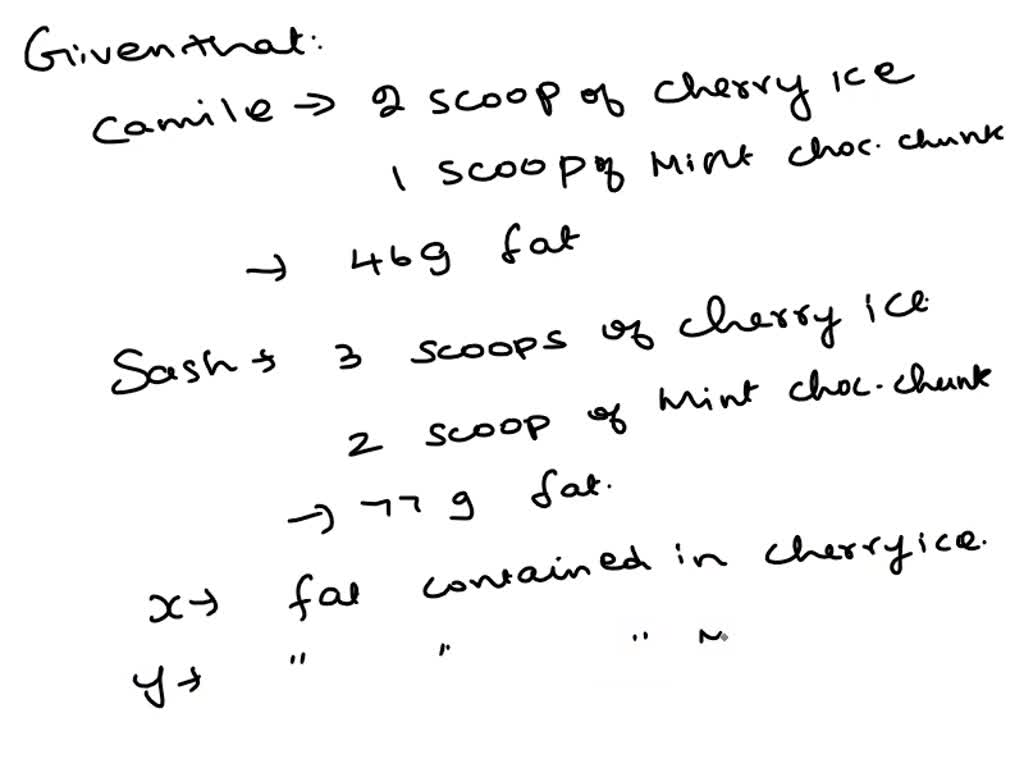 Given that:
Camile → 2 scoop of cherry ice
1 scoop of Mint choc. chunk
→ 46g fat
Sash → 3 scoops of cherry ice
2 scoop of Mint choc. chunk
→ 77 g fat.
x → fat contained in cherry ice.
y → " " " M